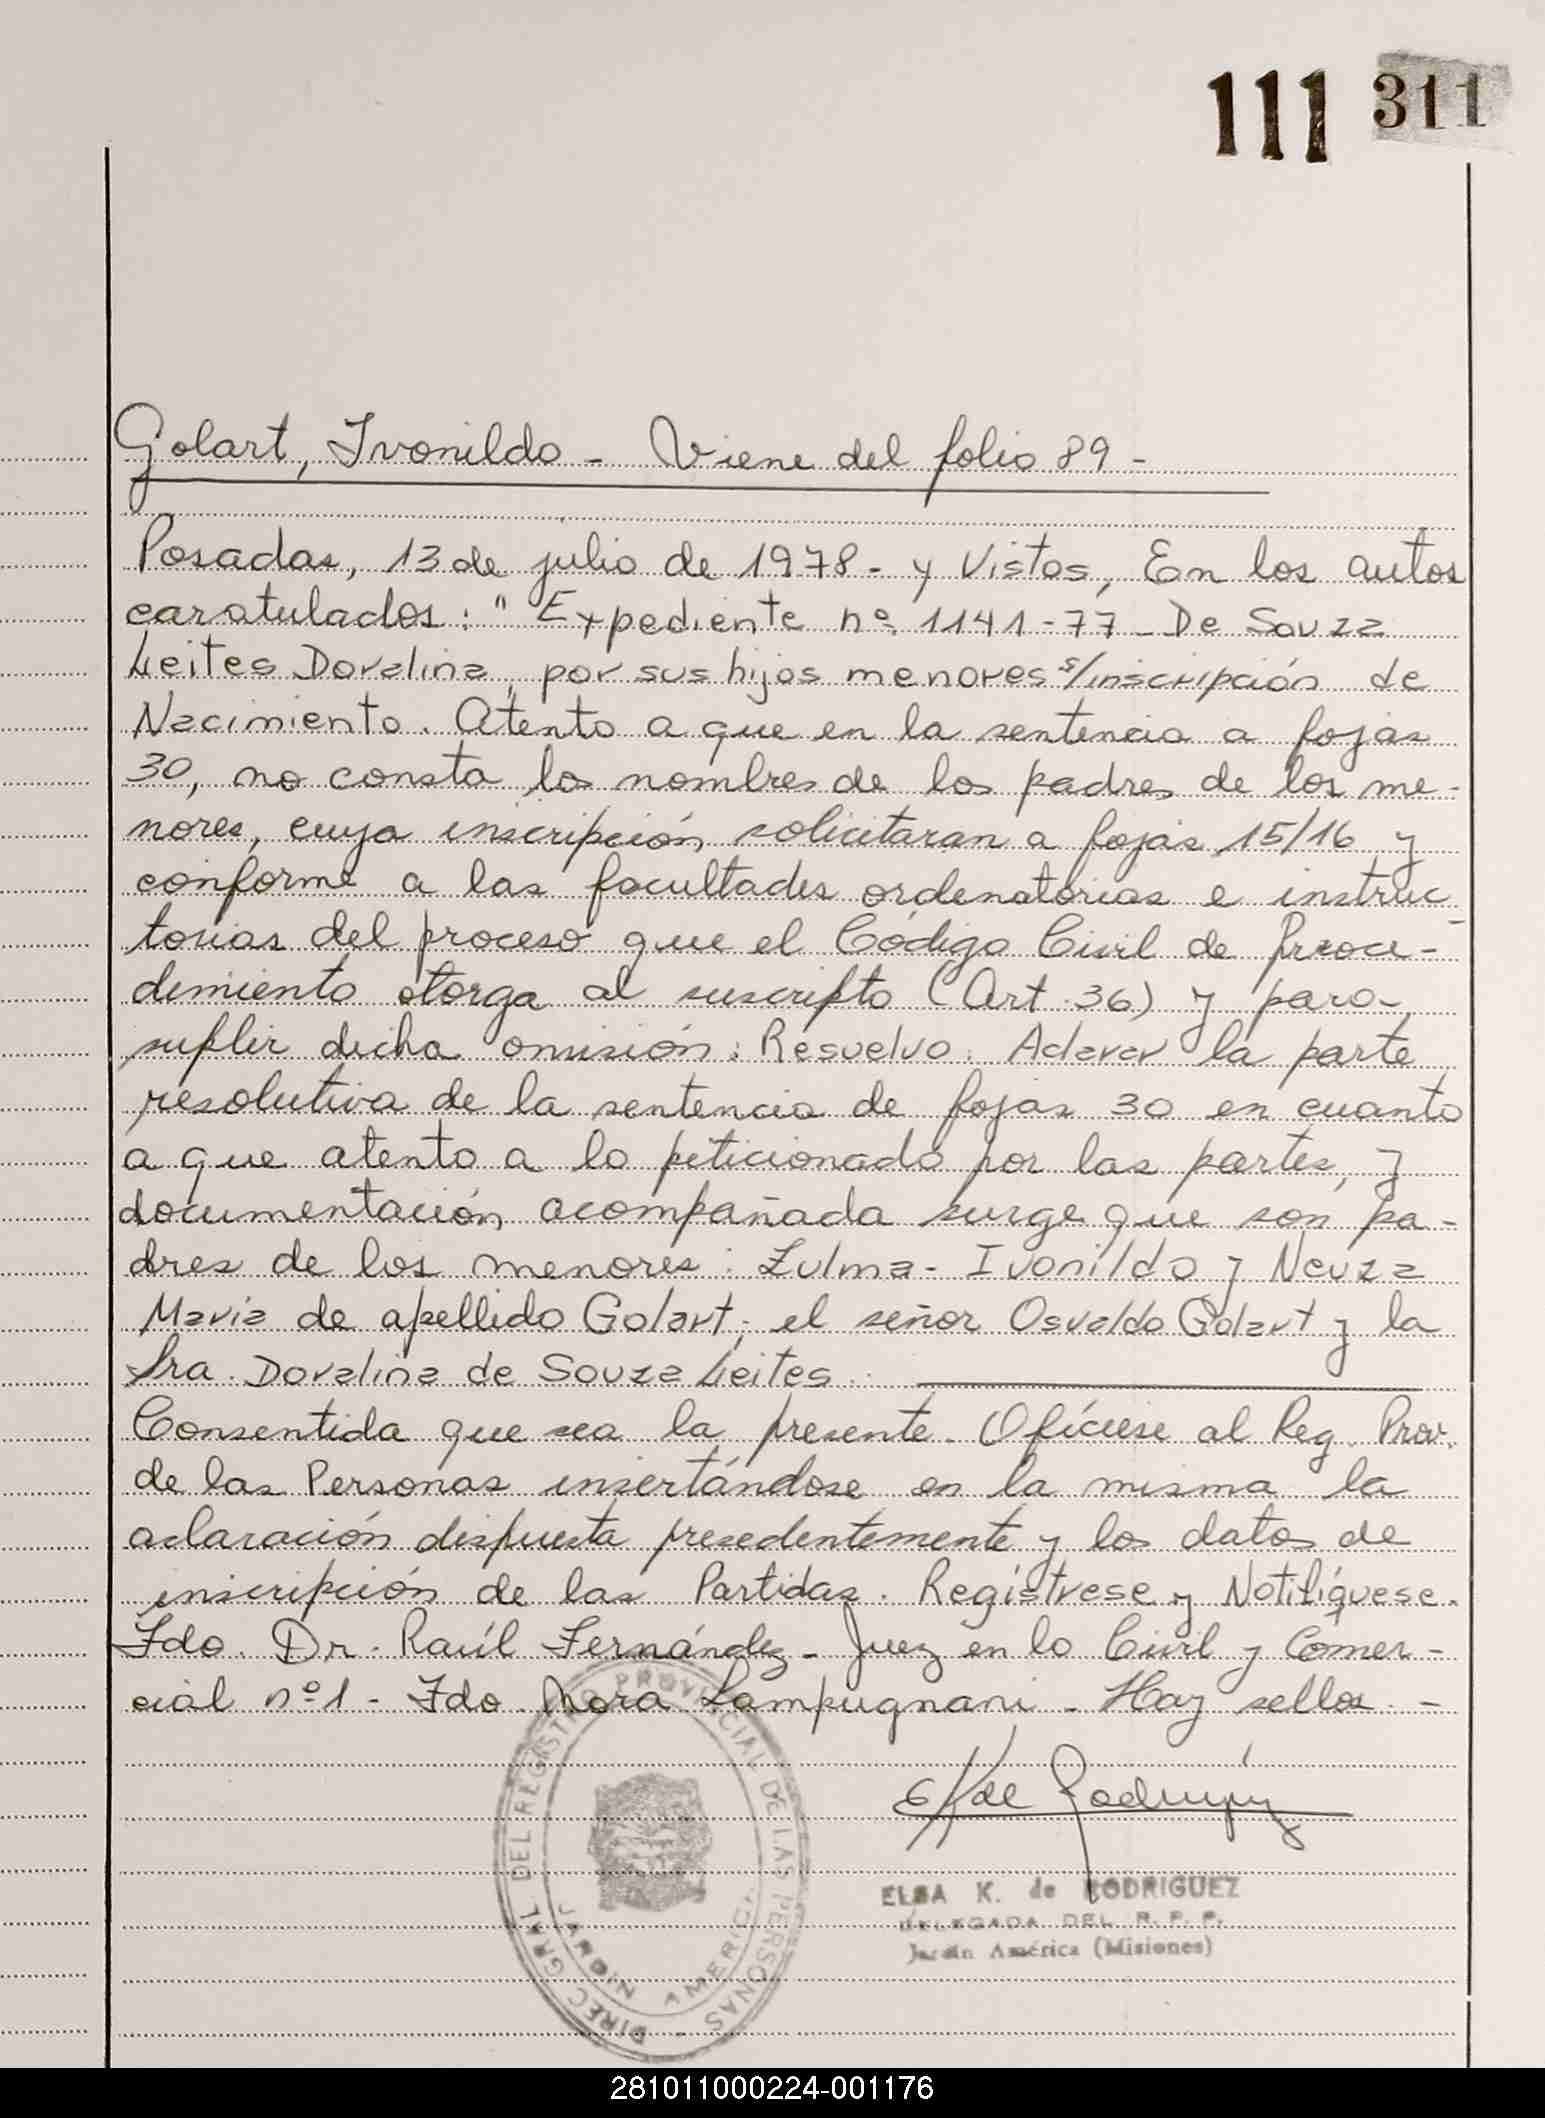 111 311
Golart, Ivonildo - Viene del folio 89 -
Posadas, 13 de julio de 1978 - y Vistos, En los autos
caratulados: " Expediente nº 1141-77 - De Souza
Leites Doralina, por sus hijos menores s/inscripción de
Nacimiento. Atento a que en la sentencia a fojas
30, no consta los nombres de los padres de los me-
nores, cuya inscripción solicitaran a fojas 15/16 y
conforme a las facultades ordenatorias e instruc-
torias del proceso que el Código Civil de Proce-
dimiento otorga al suscripto (Art. 36) y para
suplir dicha omisión: Resuelvo: Aclarar la parte
resolutiva de la sentencia de fojas 30 en cuanto
a que atento a lo peticionado por las partes, y
documentación acompañada surge que son pa-
dres de los menores: Zulma - Ivonildo y Neuza
Maria de apellido Golart; el señor Osvaldo Golart y la
Sra. Doralina de Souza Leites.
Consentida que sea la presente. Ofíciese al Reg. Prov.
de las Personas insertándose en la misma la
aclaración dispuesta presedentemente y los datos de
inscripción de las Partidas. Regístrese y Notifíquese.
Fdo. Dr. Raúl Fernández - Juez en lo Civil y Comer-
cial nº 1 - Fdo Nora Lampugnani - Hay sellos. -
EK de Rodriguez
DIREC GRAL DEL REGISTRO PROVINCIAL DE LAS PERSONAS -
JARDIN AMERICA
ELSA K. de RODRIGUEZ
DELEGADA DEL R. P. P.
Jardín América (Misiones)
281011000224-001176